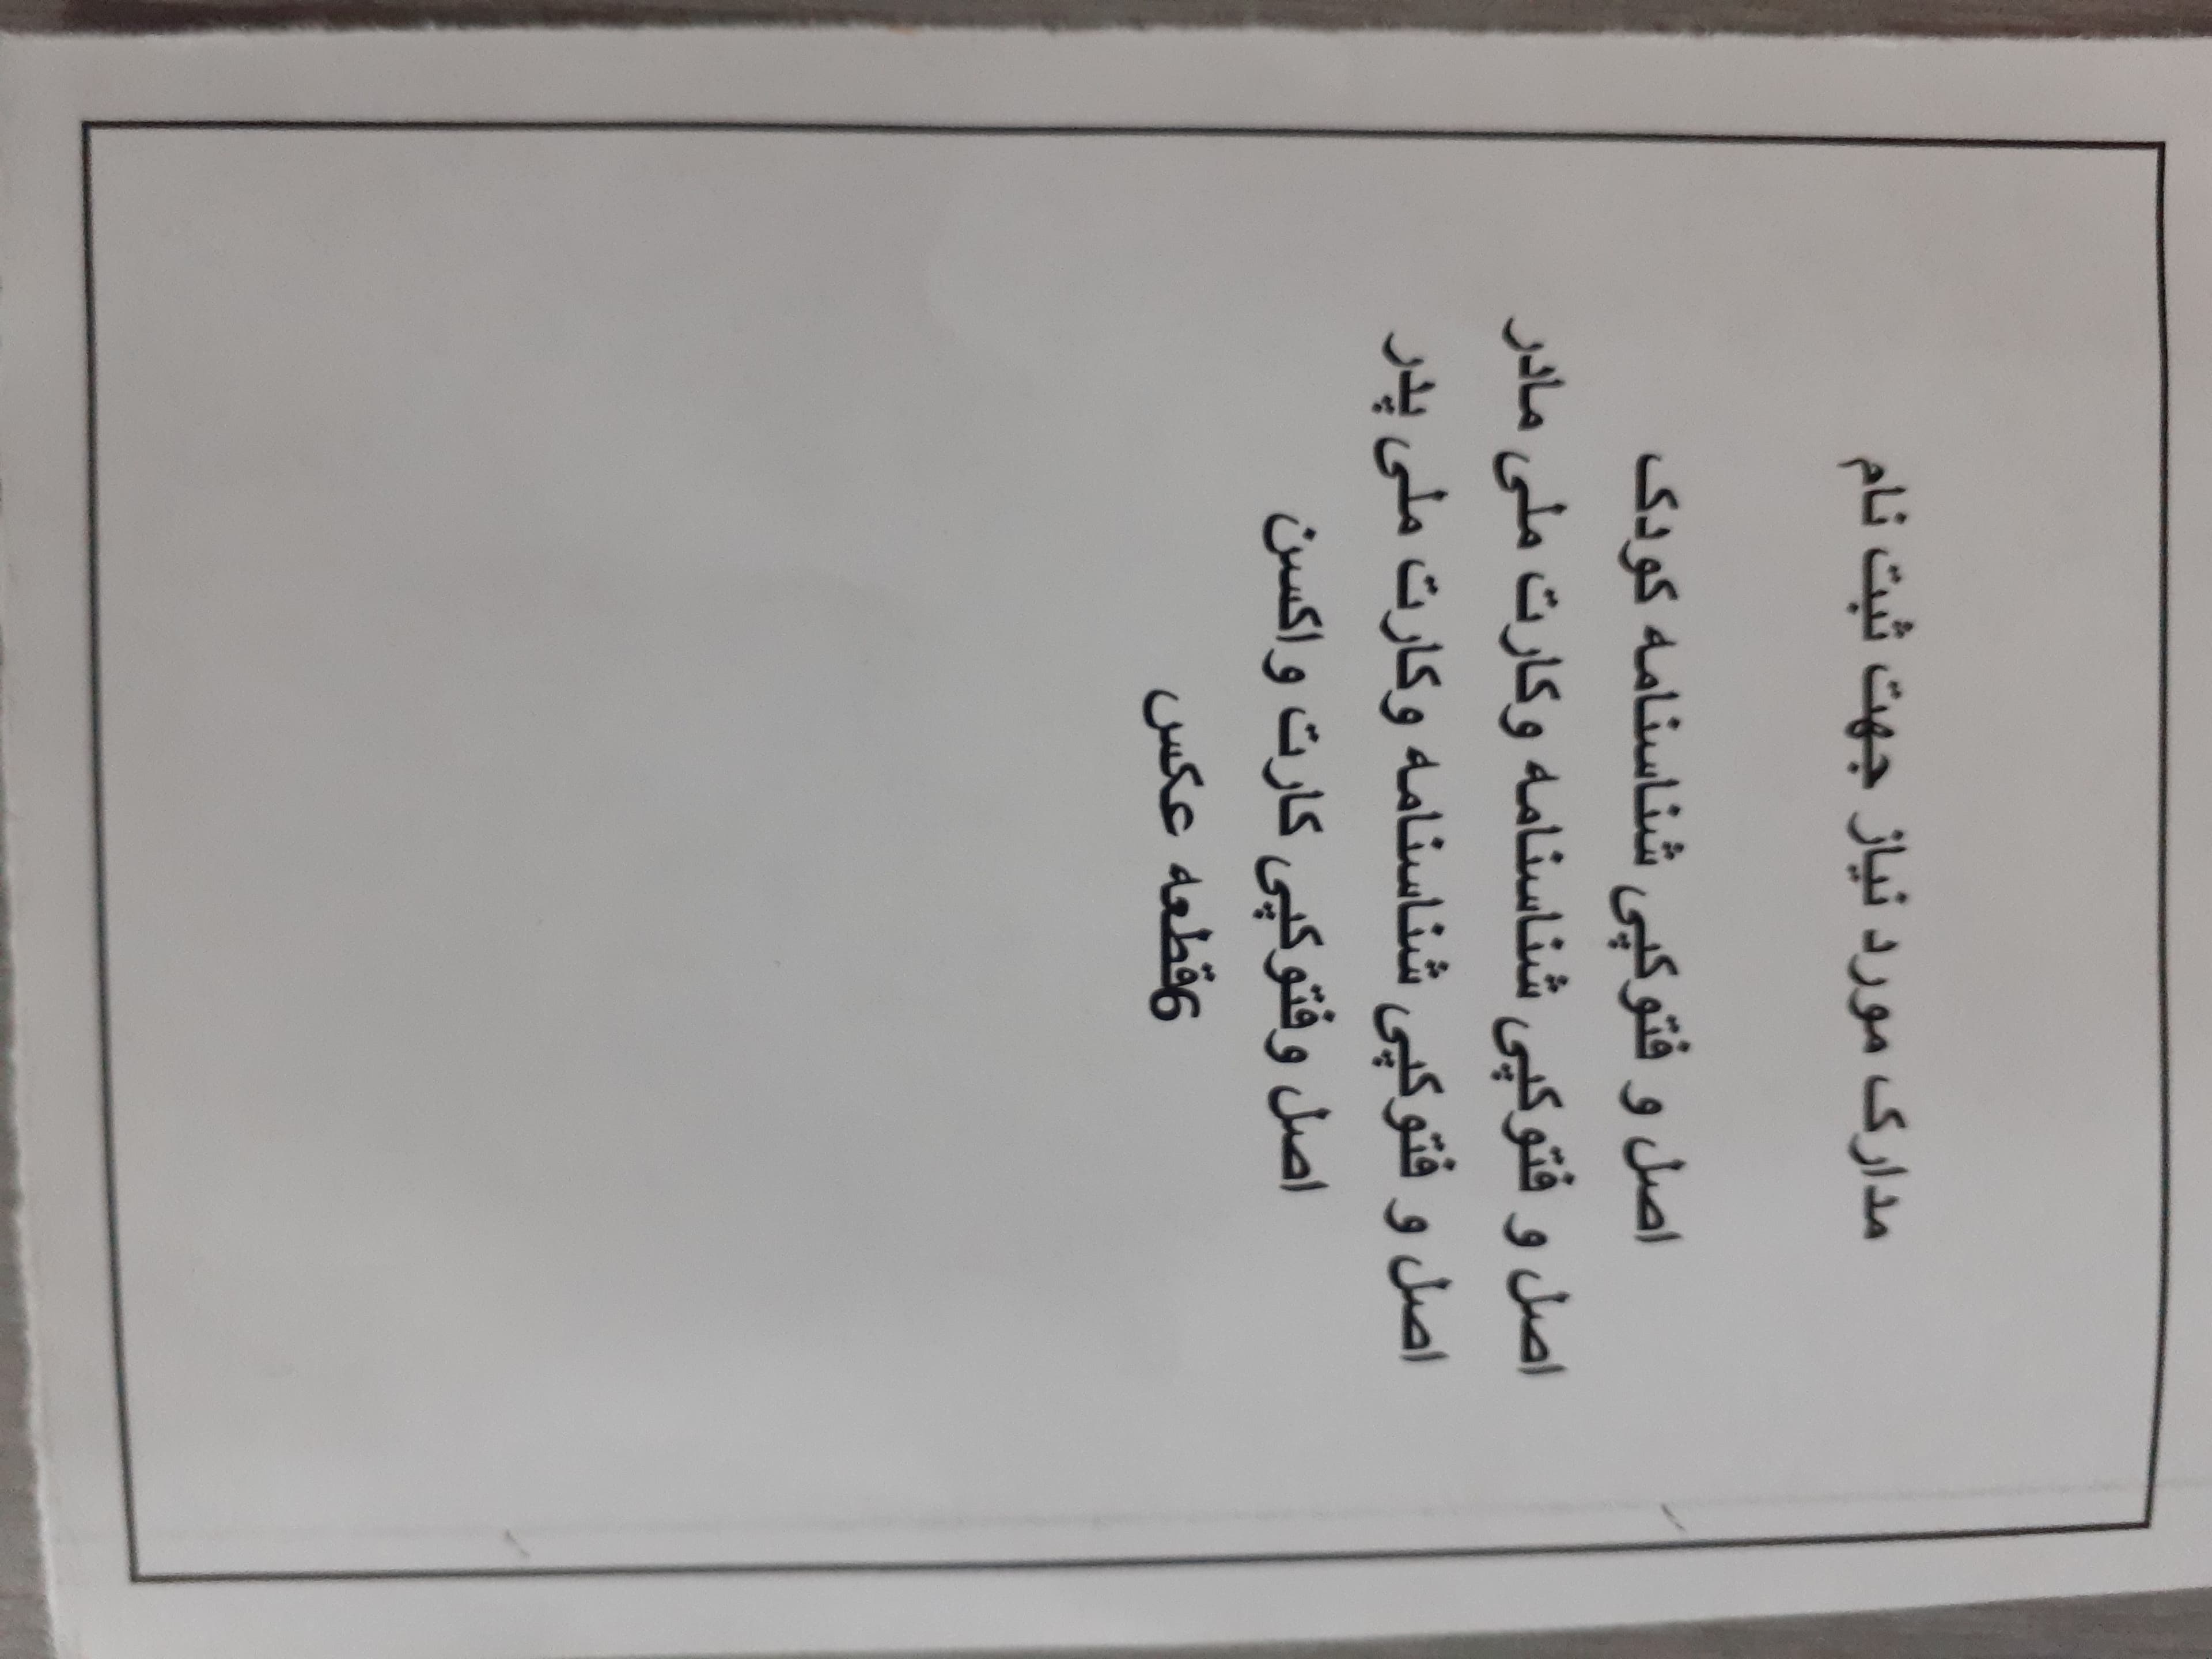 مدارک مورد نیاز جهت ثبت نام
اصل و فتوکپی شناسنامه کودک
اصل و فتوکپی شناسنامه وکارت ملی مادر
اصل و فتوکپی شناسنامه وکارت ملی پدر
اصل وفتوکپی کارت واکسن
6قطعه عکس